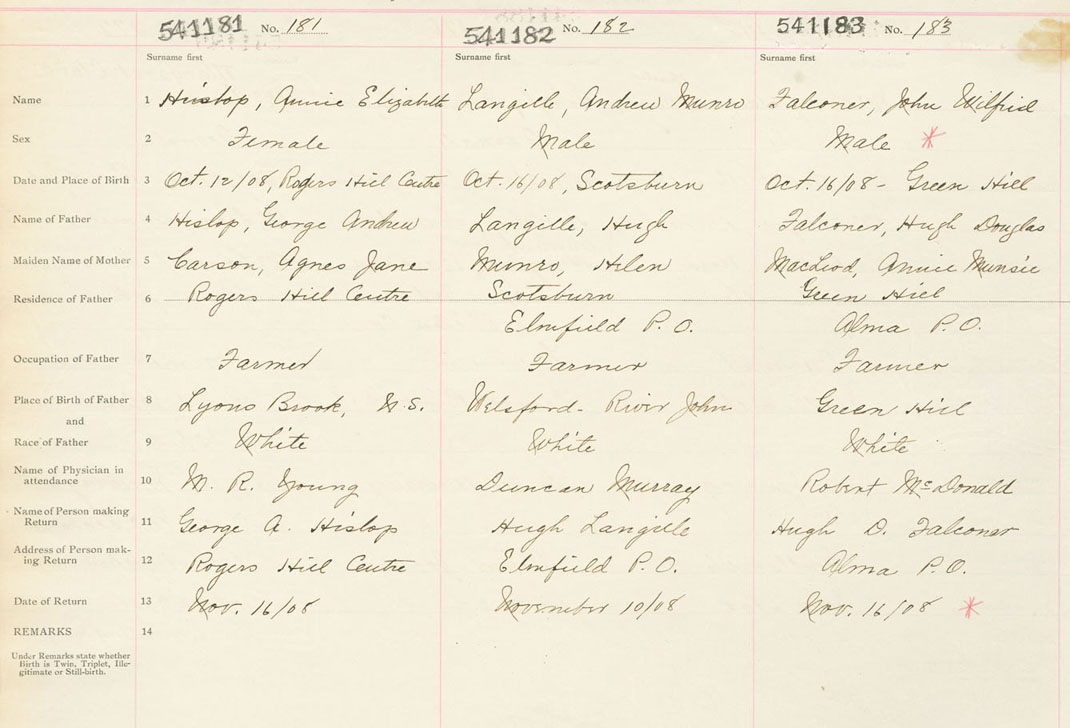 541181 No. 181 541182 No. 182 541183 No. 183
Surname first Surname first Surname first
Name 1 Hislop, Annie Elizabeth Langille, Andrew Munro Falconer, John Wilfrid
Sex 2 Female Male Male *
Date and Place of Birth 3 Oct. 12/08, Rogers Hill Centre Oct. 16/08, Scotsburn Oct. 16/08 - Green Hill
Name of Father 4 Hislop, George Andrew Langille, Hugh Falconer, Hugh Douglas
Maiden Name of Mother 5 Carson, Agnes Jane Munro, Helen MacLeod, Annie Munsie
Residence of Father 6 Rogers Hill Centre Scotsburn Green Hill
Elmfield P.O. Alma P.O.
Occupation of Father 7 Farmer Farmer Farmer
Place of Birth of Father 8 Lyons Brook, N.S. Welsford - River John Green Hill
and
Race of Father 9 White White White
Name of Physician in
attendance 10 M. R. Young Duncan Murray Robert McDonald
Name of Person making
Return 11 George A. Hislop Hugh Langille Hugh D. Falconer
Address of Person mak-
ing Return 12 Rogers Hill Centre Elmfield P.O. Alma P.O.
Date of Return 13 Nov. 16/08 November 10/08 Nov. 16/08 *
REMARKS 14
Under Remarks state whether
Birth is Twin, Triplet, Ille-
gitimate or Still-birth.